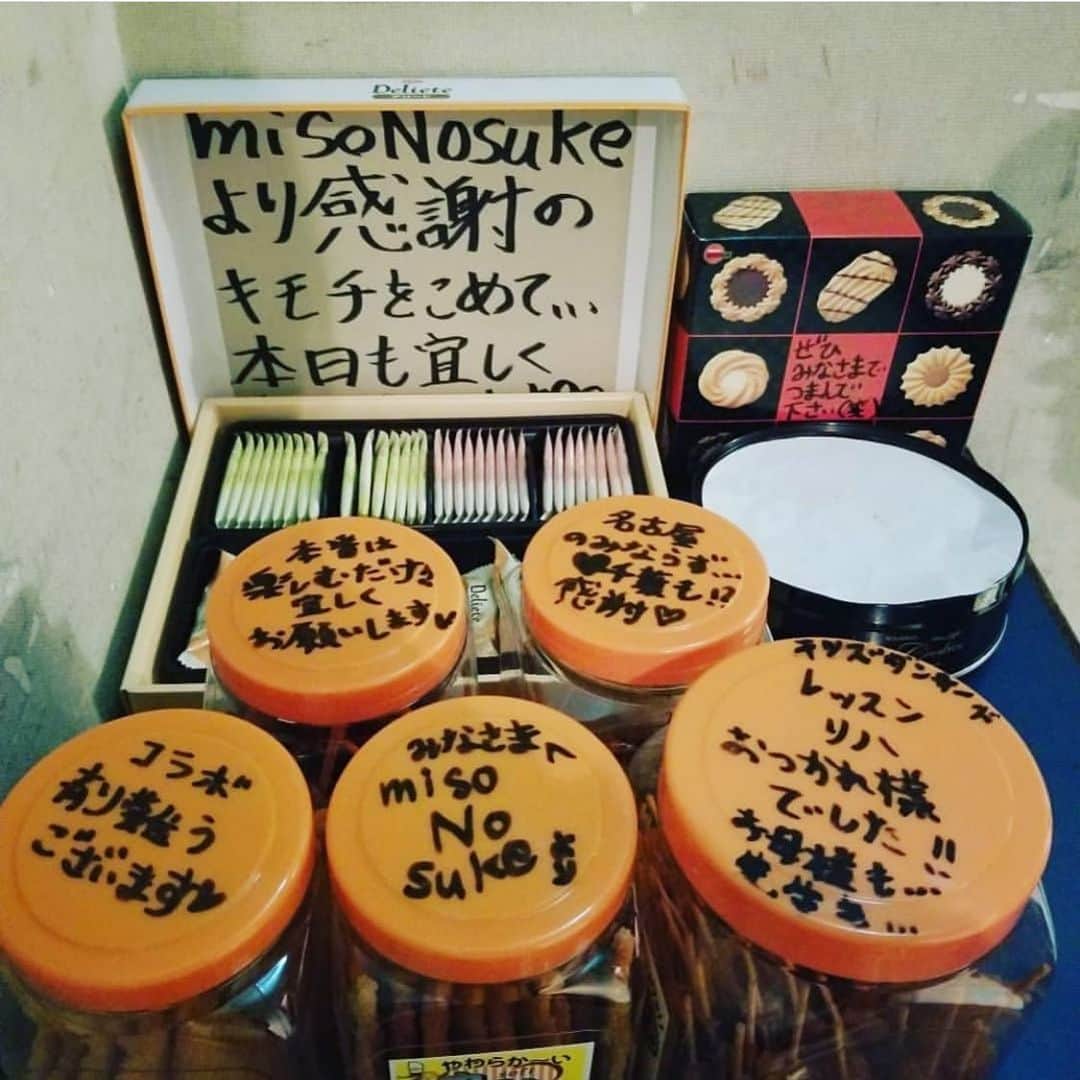 Deliete
misoNosuke
より感謝の
キモチをこめて…
本日も宜しく
ぜひ
みなさまで
つまんで
下さい(笑)
本番は
楽しむだけ!
宜しく
お願いします♥
名古屋
のみならず…
千葉も!?
感謝♡
Deliete
コラボ
有り難う
ございます
みなさまへ
miso
No
suke
より
キッズダンサーズ
レッスン
リハ
おつかれ様
でした!!
お母様も…!!
やわらか〜い